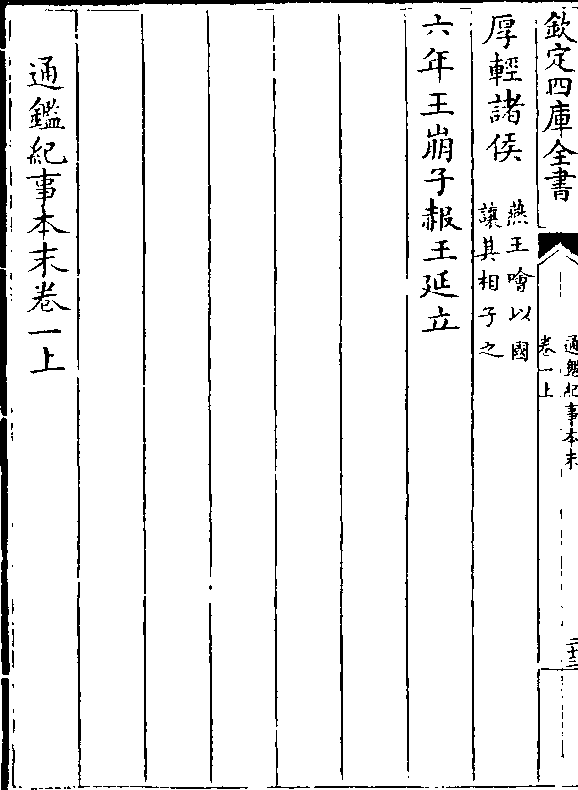 欽定四庫全書
通鑑紀事本末
卷一上
二十三
厚輕諸侯
燕王噲以國
讓其相子之
六年王崩子赧王延立
通鑑紀事本末卷一上